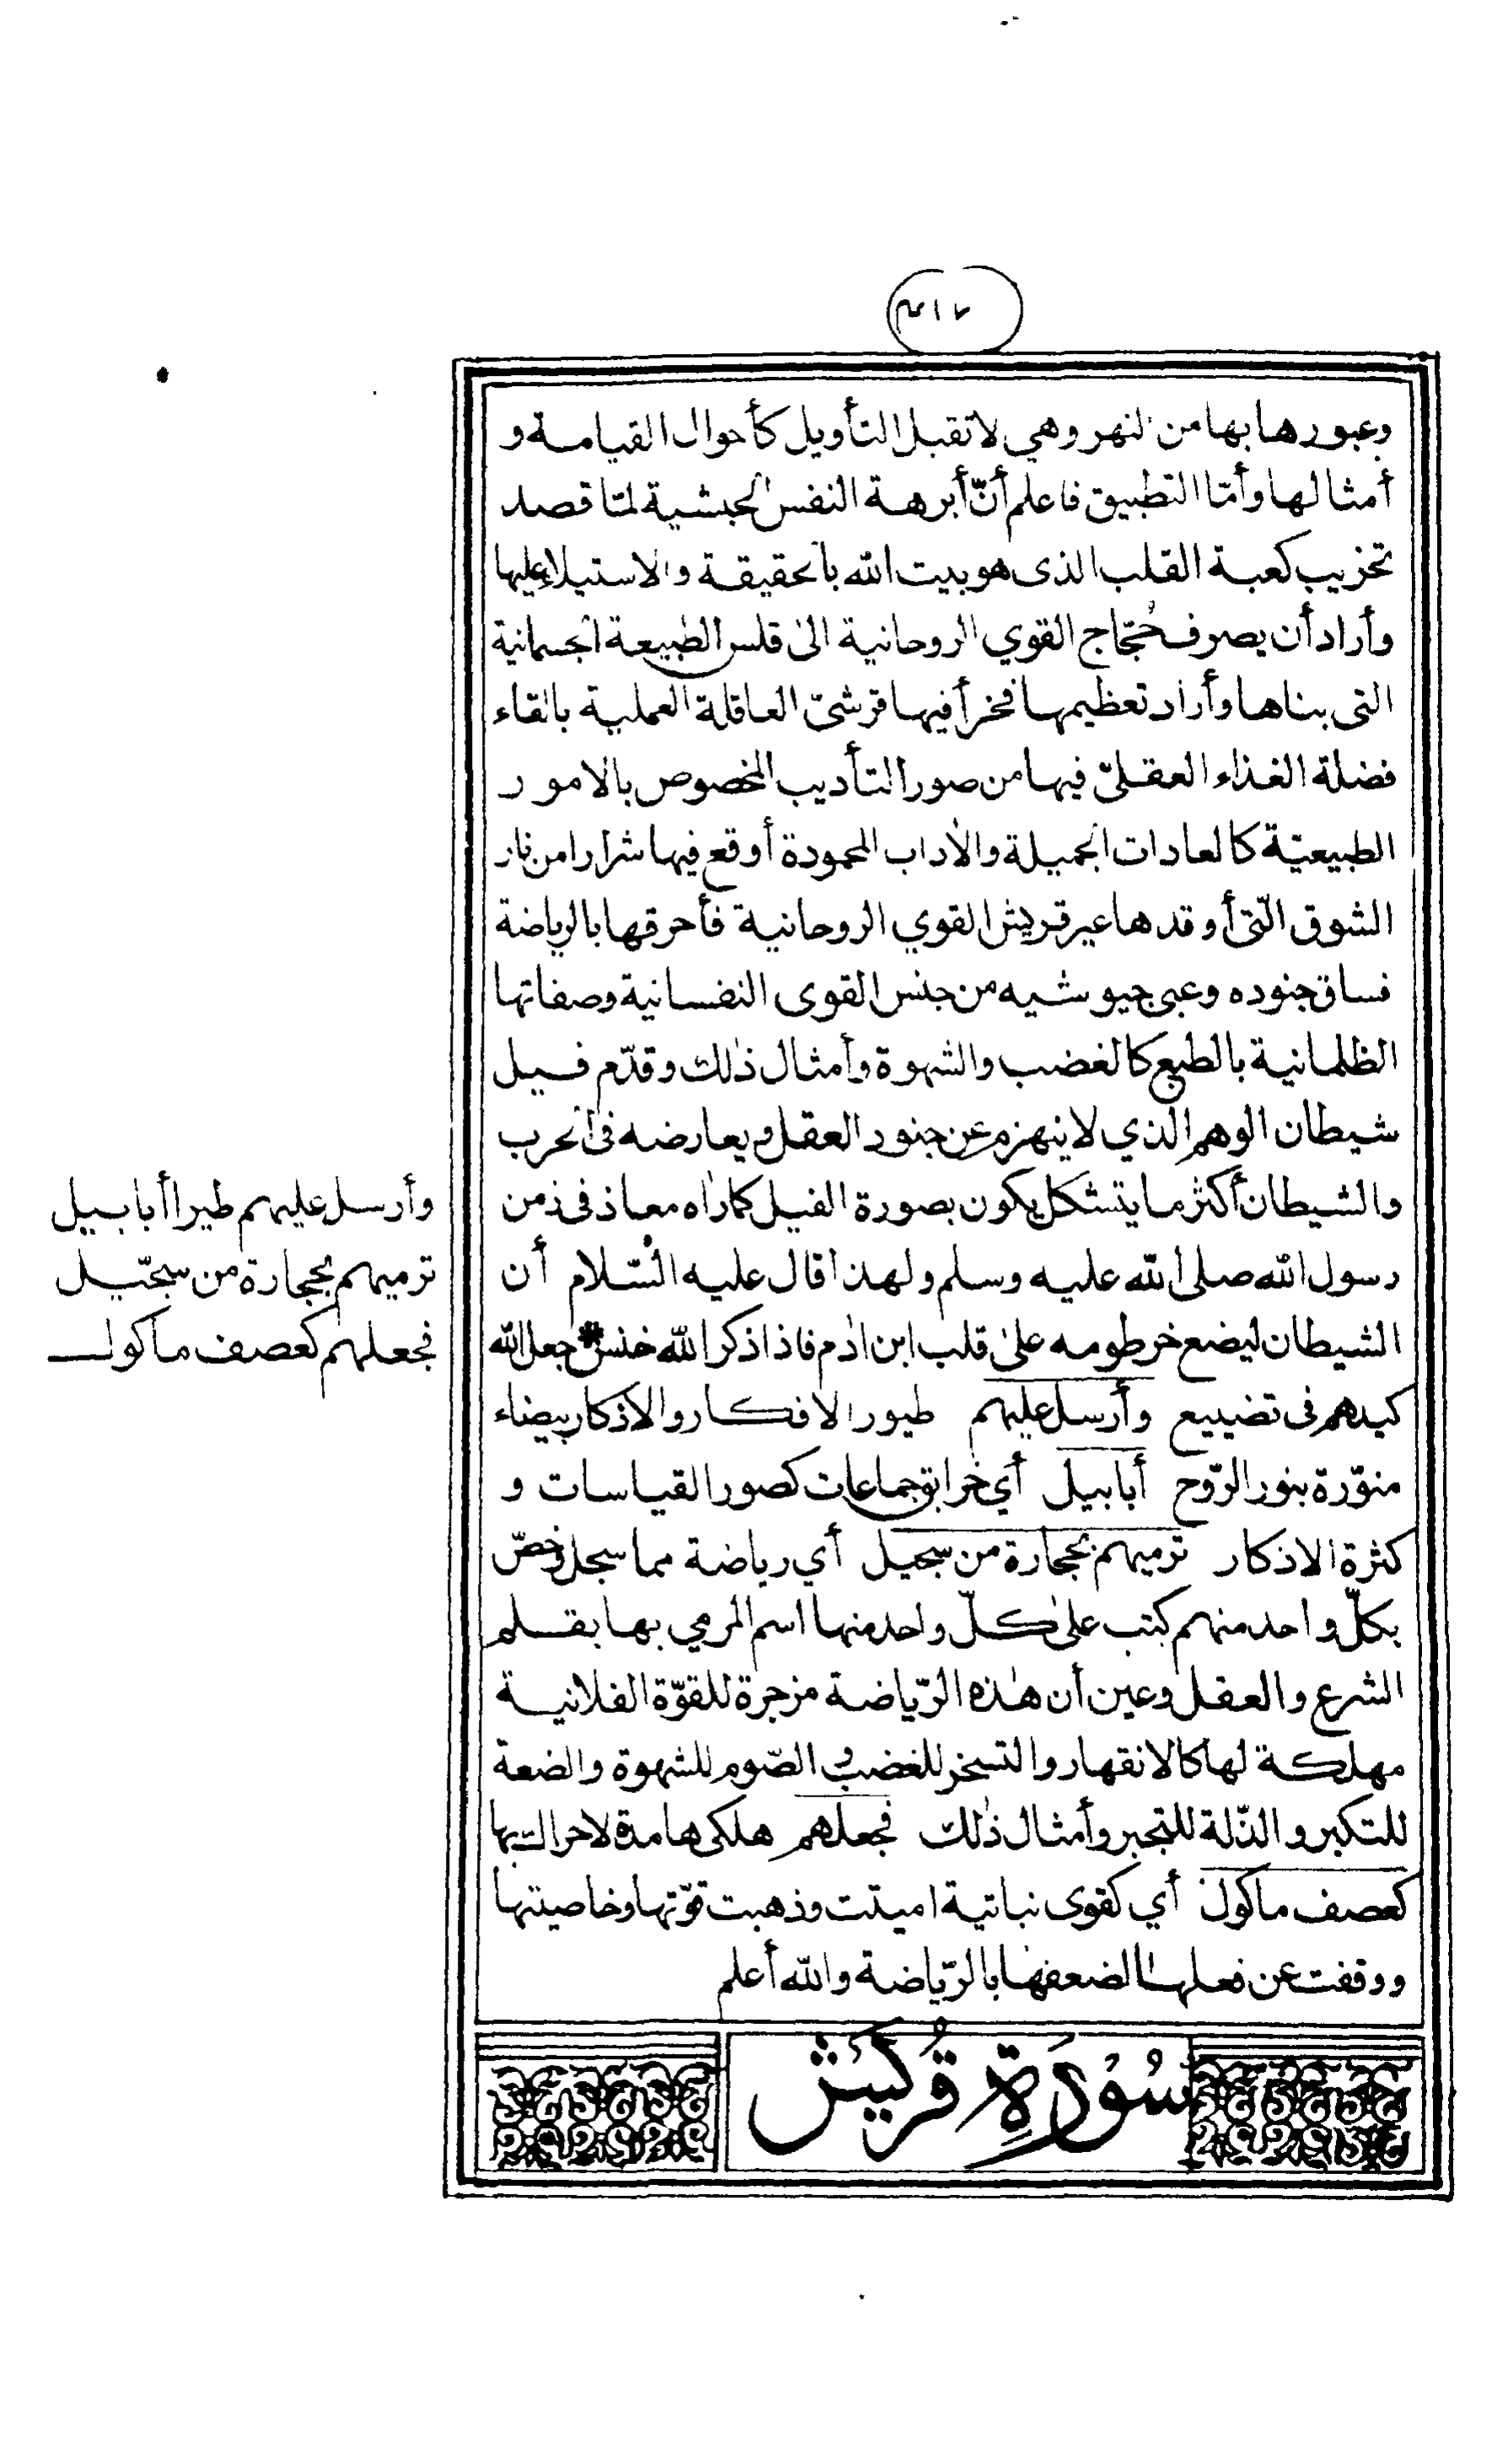 وعبورها بها من النهر وهي لا تقبل التأويل كأحوال القيامة و
أمثالها وأمّا التطبيق فاعلم أنّ أبرهة النفس الحبشية لمّا قصد
تخريب كعبة القلب الذى هو بيت الله بالحقيقة والاستيلاء عليها
وأراد أن يصرف حُجّاج القوي الروحانية الى قلس الطبيعة الجسمانية
التى بناها وأراد تعظيمها فخرأ فيها قرشىّ العاقلة العملية بالقاء
فضلة الغذاء العقلىّ فيها من صور التأديب المخصوص بالامور
الطبيعيّة كالعادات الجميلة والآداب المحمودة أوقع فيها شرارا من نار
الشوق الّتى أوقدها عير قريش القوي الروحانية فأحرقها بالرياضة
فساق جنوده وعبى جيوشه من جنس القوى النفسانية وصفاتها
الظلمانية بالطبع كالغضب والشهوة وأمثال ذلك وقدّم فيل
شيطان الوهم الذي لا ينهزم عن جنود العقل ويعارضه فى الحرب
والشيطان أكثر ما يتشكل يكون بصورة الفيل كما رآه معاذ فى زمن
رسول الله صلى الله عليه وسلم ولهذا قال عليه السّلام أن
الشيطان ليضع خرطومه على قلب ابن ادم فاذا ذكر الله خنس * جعل الله
كيدهم فى تضييع وأرسل عليهم طيور الافكار والاذكار بيضاء
منوّرة بنور الرّوح أبابيل أي جماعات كصور القياسات و
كثرة الاذكار ترميهم بحجارة من سجيل أي رياضة مما سجل وخصّ
بكلّ واحد منهم كتب على كلّ واحد منها اسم المرمي بها بقلم
الشرع والعقل وعين أن هٰذه الرّياضة مزجرة للقوّة الفلانية
مهلكة لها كالانقهار والتسخر للغضب و الصّوم للشهوة والضعة
للتكبر والذّلة للتجبر وأمثال ذٰلك فجعلهم هلكى هامدة لا حراك بها
كعصف ماكول أي كقوى نباتية اميتت وذهبت قوّتها وخاصيتها
ووقفت عن فعلها لضعفها بالرّياضة والله أعلم
وأرسل عليهم طيرا أبابيل
ترميهم بحجارة من سجّيل
فجعلهم كعصف ماكول
سُوْرَةِ قُرَيْش